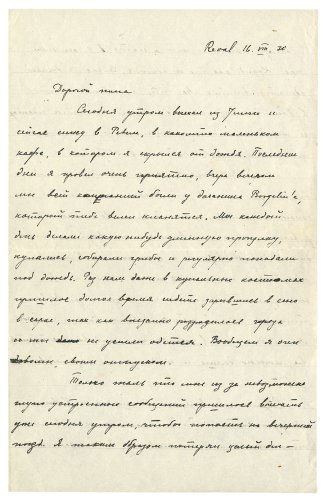 Reval 16. VIII. 30
Дорогой папа
Сегодня утром выехал из и
сейчас сижу в Ревеле, в какомто маленьком
кафе, в котором я скрылся от дождя. Последние
дни я провел очень приятно, вчера вечером
мы всей компанией были у
которой тебе велел кланяться. Мы каждый
день делали какую нибудь длинную прогулку,
купались, собирали грибы и регулярно попадали
под дождь. Раз нам даже в купальных костюмах
пришлось долгое время сидеть зарывшись в сено
в сарае, так как внезапно разразилась гроза
и мы не успели одеться. Вообщем я очень
доволен своим отпуском.
Только жаль что мне из за невозможно
глупо устроенного сообщения пришлось выехать
уже сегодня утром, чтобы попасть на вечерний
поезд. Я таким образом потерял целый день